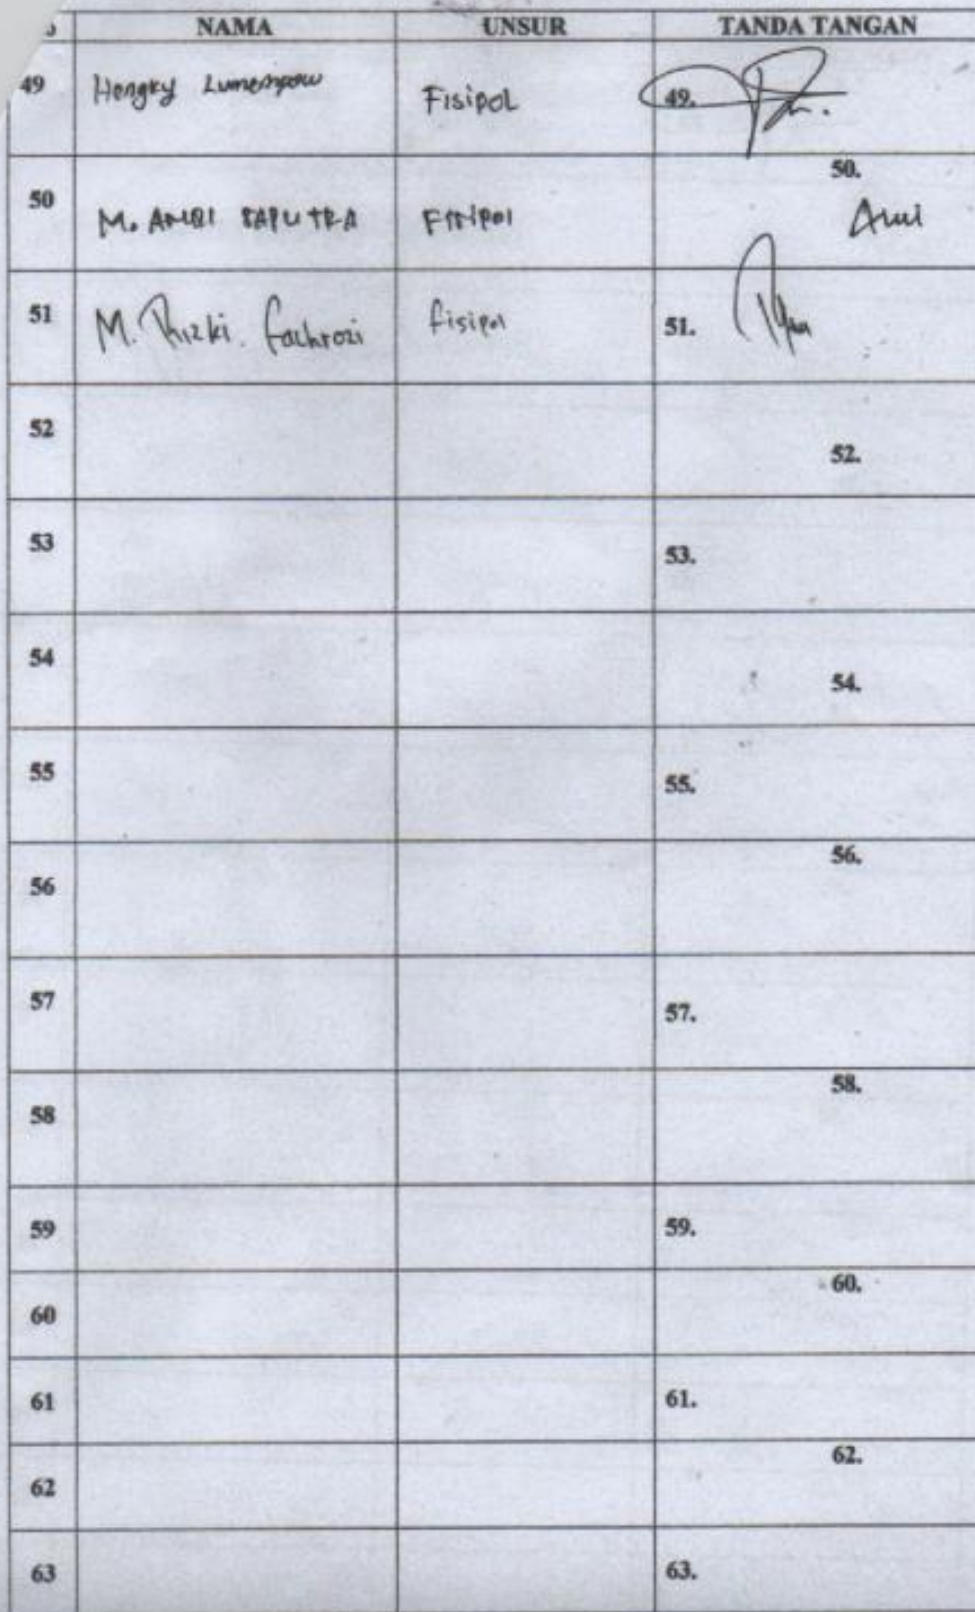 NAMA UNSUR TANDA TANGAN
49 Hengky Fisipol 49.
50 M. SAPUTRA Fisipol 50.
51 M. Rizki. fachrozi fisipol 51.
52 52.
53 53.
54 54.
55 55.
56 56.
57 57.
58 58.
59 59.
60 60.
61 61.
62 62.
63 63.